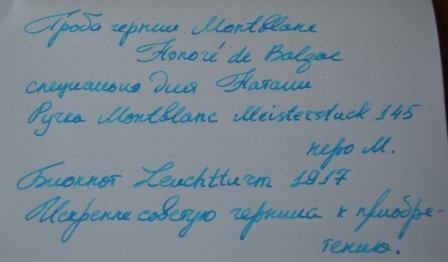 Проба чернил Montblanc
Honoré de Balzac
специально для Натали
Ручка Montblanc Meisterstuck 145
перо М.
Блокнот Leuchtturm 1917
Искренне советую чернила к приобре-
тению.